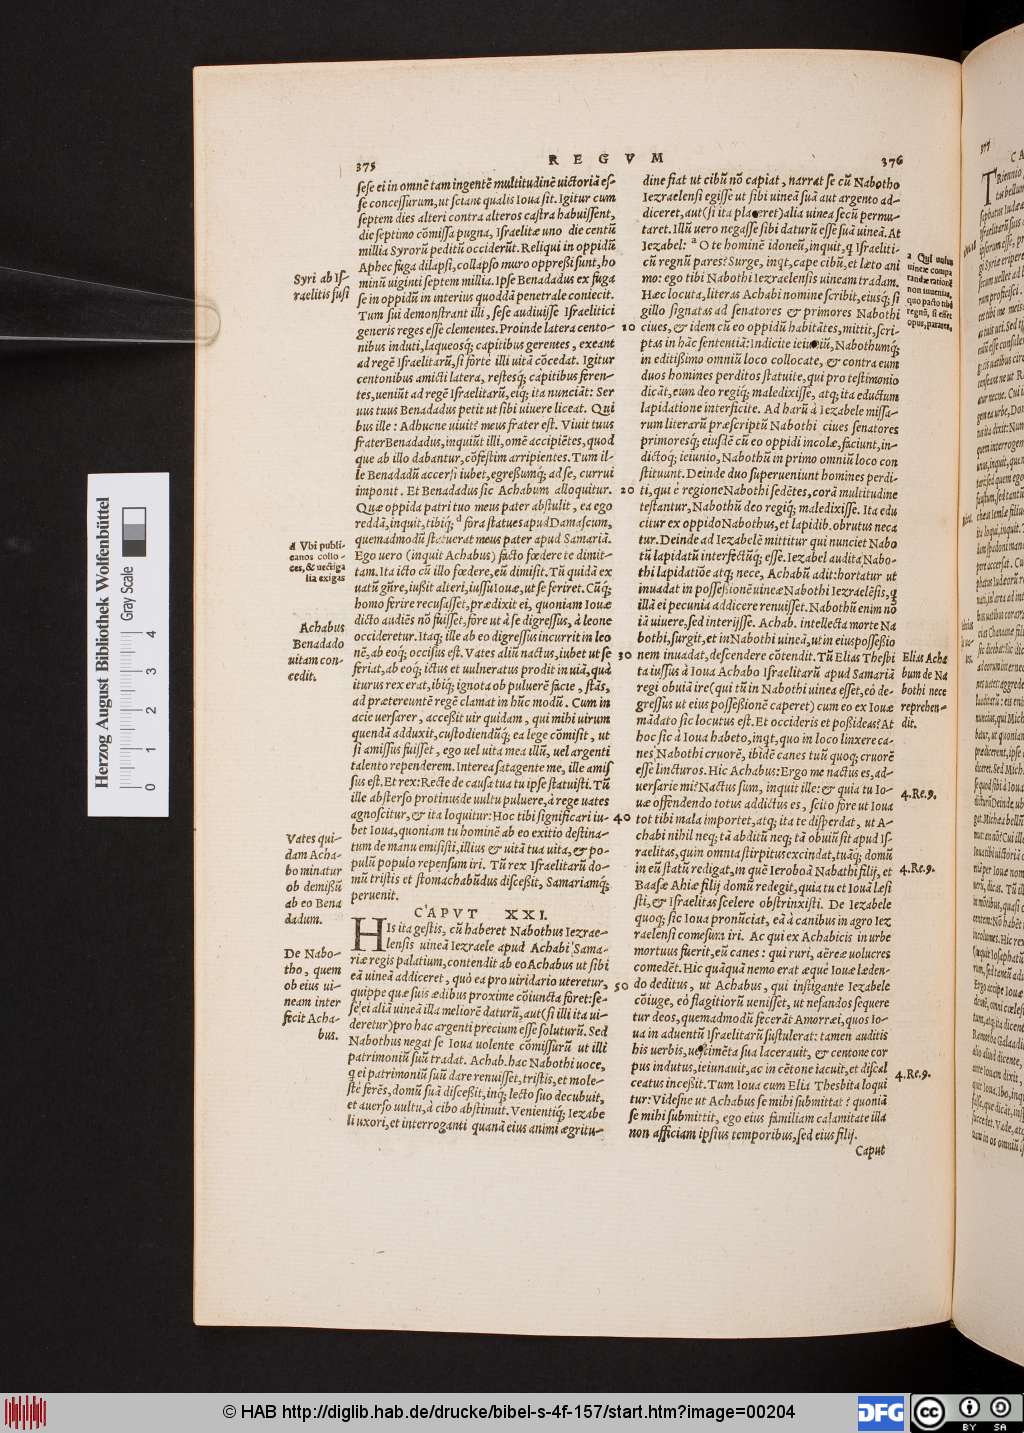 375
R E G V M
376
sese ei in omnẽ tam ingentẽ multitudinẽ uictoriã es-
se concessurum, ut sciant qualis Ioua sit. Igitur cum
septem dies alteri contra alteros castra habuissent,
die septimo cõmissa pugna, Israelitæ uno die centũ
millia Syrorũ peditũ occiderũt. Reliqui in oppidũ
Aphec fuga dilapsi, collapso muro oppreßi sunt, ho
minũ uiginti septem millia. Ipse Benadadus ex fuga
se in oppidũ in interius quoddã penetrale coniecit.
Tum sui demonstrant illi, sese audiuisse Israelitici
generis reges esse clementes. Proinde latera cento-
nibus induti, laqueosq; capitibus gerentes, exeant
ad regẽ Israelitarũ, si fortè illi uitã cõcedat. Igitur
centonibus amicti latera, restesq; capitibus feren-
tes, ueniũt ad regẽ Israelitarũ, eiq; ita nunciãt: Ser
uus tuus Benadadus petit ut sibi uiuere liceat. Qui
bus ille: Adhucne uiuit? meus frater est. Viuit tuus
frater Benadadus, inquiũt illi, omẽ accipiẽtes, quod
que ab illo dabantur, cõfestim arripientes. Tum il-
le Benadadũ accersi iubet, egressumq; ad se, currui
imponit. Et Benadadus sic Achabum alloquitur.
Quæ oppida patri tuo meus pater abstulit, ea ego
reddã, inquit, tibiq; d fora statues apud Damascum,
quemadmodũ statuerat meus pater apud Samariã.
Ego uero (inquit Achabus) facto fœdere te dimit-
tam. Ita icto cũ illo fœdere, eũ dimisit. Tũ quidã ex
uatũ gñre, iußit alteri, iussu Iouæ, ut se feriret. Cũq;
homo ferire recusasset, prædixit ei, quoniam Iouæ
dicto audiẽs nõ fuisset, fore ut à se digressus, à leone
occideretur. Itaq; ille ab eo digressus incurrit in leo
nẽ, ab eoq; occisus est. Vates aliũ nactus, iubet ut se
feriat, ab eoq; ictus et uulneratus prodit in uiã, quà
iturus rex erat, ibiq; ignota ob puluerẽ facie, stãs,
ad prætereuntẽ regẽ clamat in hũc modũ. Cum in
acie uersarer, acceßit uir quidam, qui mihi uirum
quendã adduxit, custodiendũq; ea lege cõmisit, ut
si amissus fuisset, ego uel uita mea illũ, uel argenti
talento rependerem. Interea satagente me, ille amis
sus est. Et rex: Recte de causa tua tu ipse statuisti. Tũ
ille absterso protinus de uultu puluere, à rege uates
agnoscitur, & ita loquitur: Hoc tibi significari iu-
bet Ioua, quoniam tu hominẽ ab eo exitio destina-
tum de manu emisisti, illius & uitã tua uita, & po-
pulũ populo repensum iri. Tũ rex Israelitarũ do-
mũ tristis et stomachabũdus disceßit, Samariamq;
peruenit.
CAPVT XXI.
HIs ita gestis, cũ haberet Nabothus Iezrae-
lensis uineã Iezraele apud Achabi Sama-
riæ regis palatium, contendit ab eo Achabus ut sibi
eã uineã addiceret, quò ea pro uiridario uteretur,
quippe quæ suis ædibus proxime cõiuncta foret: se-
se ei aliã uineã illa meliorẽ daturũ, aut (si illi ita ui-
deretur) pro hac argenti precium esse soluturũ. Sed
Nabothus negat se Ioua uolente cõmissurũ ut illi
patrimoniũ suũ tradat. Achab. hac Nabothi uoce,
q ei patrimoniũ suũ dare renuisset, tristis, et mole-
ste ferẽs, domũ suã disceßit, inq; lecto suo decubuit,
et auerso uultu, à cibo abstinuit. Venientiq; Iezabe
li uxori, et interroganti quanã eius animi ægritu-
Syri ab Is-
raelitis fusi
d Vbi publi-
canos collo-
ces, & uectiga
lia exigas
Achabus
Benadado
uitam con-
cedit.
Vates qui-
dam Acha-
bo minatur
ob demißũ
ab eo Bena
dadum.
De Nabo-
tho, quem
ob eius ui-
neam inter
fecit Acha-
bus.
10
20
30
40
50
dine fiat ut cibũ nõ capiat, narrat se cũ Nabotho
Iezraelensi egisse ut sibi uineã suã aut argento ad-
diceret, aut (si ita placeret) alia uinea secũ permu-
taret. Illũ uero negasse sibi daturũ esse suã uineã. At
Iezabel: a O te hominẽ idoneũ, inquit, q Israeliti-
cũ regnũ pares? Surge, inqt, cape cibũ, et læto ani
mo: ego tibi Nabothi Iezraelensis uineam tradam.
Hæc locuta, literas Achabi nomine scribit, eiusq; si
gillo signatas ad senatores & primores Nabothi
ciues, & idem cũ eo oppidũ habitãtes, mittit, scri-
ptas in hãc sententiã: Indicite ieiuniũ, Nabothumq;
in editißimo omniũ loco collocate, & contra eum
duos homines perditos statuite, qui pro testimonio
dicãt, eum deo regiq; maledixisse, atq; ita eductum
lapidatione interficite. Ad harũ à Iezabele missa-
rum literarũ præscriptũ Nabothi ciues senatores
primoresq; eiusdẽ cũ eo oppidi incolæ, faciunt, in-
dictoq; ieiunio, Nabothũ in primo omniũ loco con
stituunt. Deinde duo superueniunt homines perdi-
ti, qui è regione Nabothi sedẽtes, corã multitudine
testantur, Nabothũ deo regiq; maledixisse. Ita edu
citur ex oppido Nabothus, et lapidib. obrutus neca
tur. Deinde ad Iezabelẽ mittitur qui nunciet Nabo
tũ lapidatũ interfectũq; esse. Iezabel audita Nabo-
thi lapidatiõe atq; nece, Achabũ adit: hortatur ut
inuadat in possessionẽ uineæ Nabothi Iezraelẽsis, q
illã ei pecunia addicere renuisset. Nabothũ enim nõ
iã uiuere, sed interijsse. Achab. intellecta morte Na
bothi, surgit, et in Nabothi uineã, ut in eius possessio
nem inuadat, descendere cõtendit. Tũ Elias Thesbi
ta iussus à Ioua Achabo Israelitarũ apud Samariã
regi obuiã ire (qui tũ in Nabothi uinea esset, eò de-
gressus ut eius possessionẽ caperet) cum eo ex Iouæ
mãdato sic locutus est. Et occideris et poßideas? At
hoc sic à Ioua habeto, inqt, quo in loco linxere ca-
nes Nabothi cruorẽ, ibidẽ canes tuũ quoq; cruorẽ
esse lincturos. Hic Achabus: Ergo me nactus es, ad-
uersarie mi? Nactus sum, inquit ille: & quia tu Io-
uæ offendendo totus addictus es, scito fore ut Ioua
tot tibi mala importet, atq; ita te disperdat, ut A-
chabi nihil neq; tã abditũ neq; tã obuiũ sit apud Is-
raelitas, quin omnia stirpitus excindat, tuãq; domũ
in eũ statũ redigat, in quẽ Ieroboã Nabathi filij, et
Baasæ Ahiæ filij domũ redegit, quia tu et Iouã læsi
sti, & Israelitas scelere obstrinxisti. De Iezabele
quoq; sic Ioua pronũciat, eã à canibus in agro Iez
raelensi comesum iri. Ac qui ex Achabicis in urbe
mortuus fuerit, eũ canes: qui ruri, aëreæ uolucres
comedẽt. Hic quãquã nemo erat æquè Iouæ læden-
do deditus, ut Achabus, qui instigante Iezabele
cõiuge, eò flagitiorũ uenisset, ut nefandos sequere
tur deos, quemadmodũ fecerãt Amorræi, quos Io-
ua in aduentũ Israelitarũ sustulerat: tamen auditis
his uerbis, uestimẽta sua lacerauit, & centone cor
pus indutus, ieiunauit, ac in cẽtone iacuit, et discal
ceatus inceßit. Tum Ioua cum Elia Thesbita loqui
tur: Videsne ut Achabus se mihi submittat? quoniã
se mihi submittit, ego eius familiam calamitate illa
non afficiam ipsius temporibus, sed eius filij.
Caput
a Qui uelus
uineæ compa
randæ rationẽ
non inuenias,
quo pacto tibi
regnũ, si esset
opus, parares.
Elias Acha
bum de Na
bothi nece
reprehen-
dit.
4. Re. 9.
4. Re. 9.
4. Re. 9.
377
Herzog August Bibliothek Wolfenbüttel
Gray Scale
0 1 2 3 4
© HAB http://diglib.hab.de/drucke/bibel-s-4f-157/start.htm?image=00204
DFG
CC BY SA